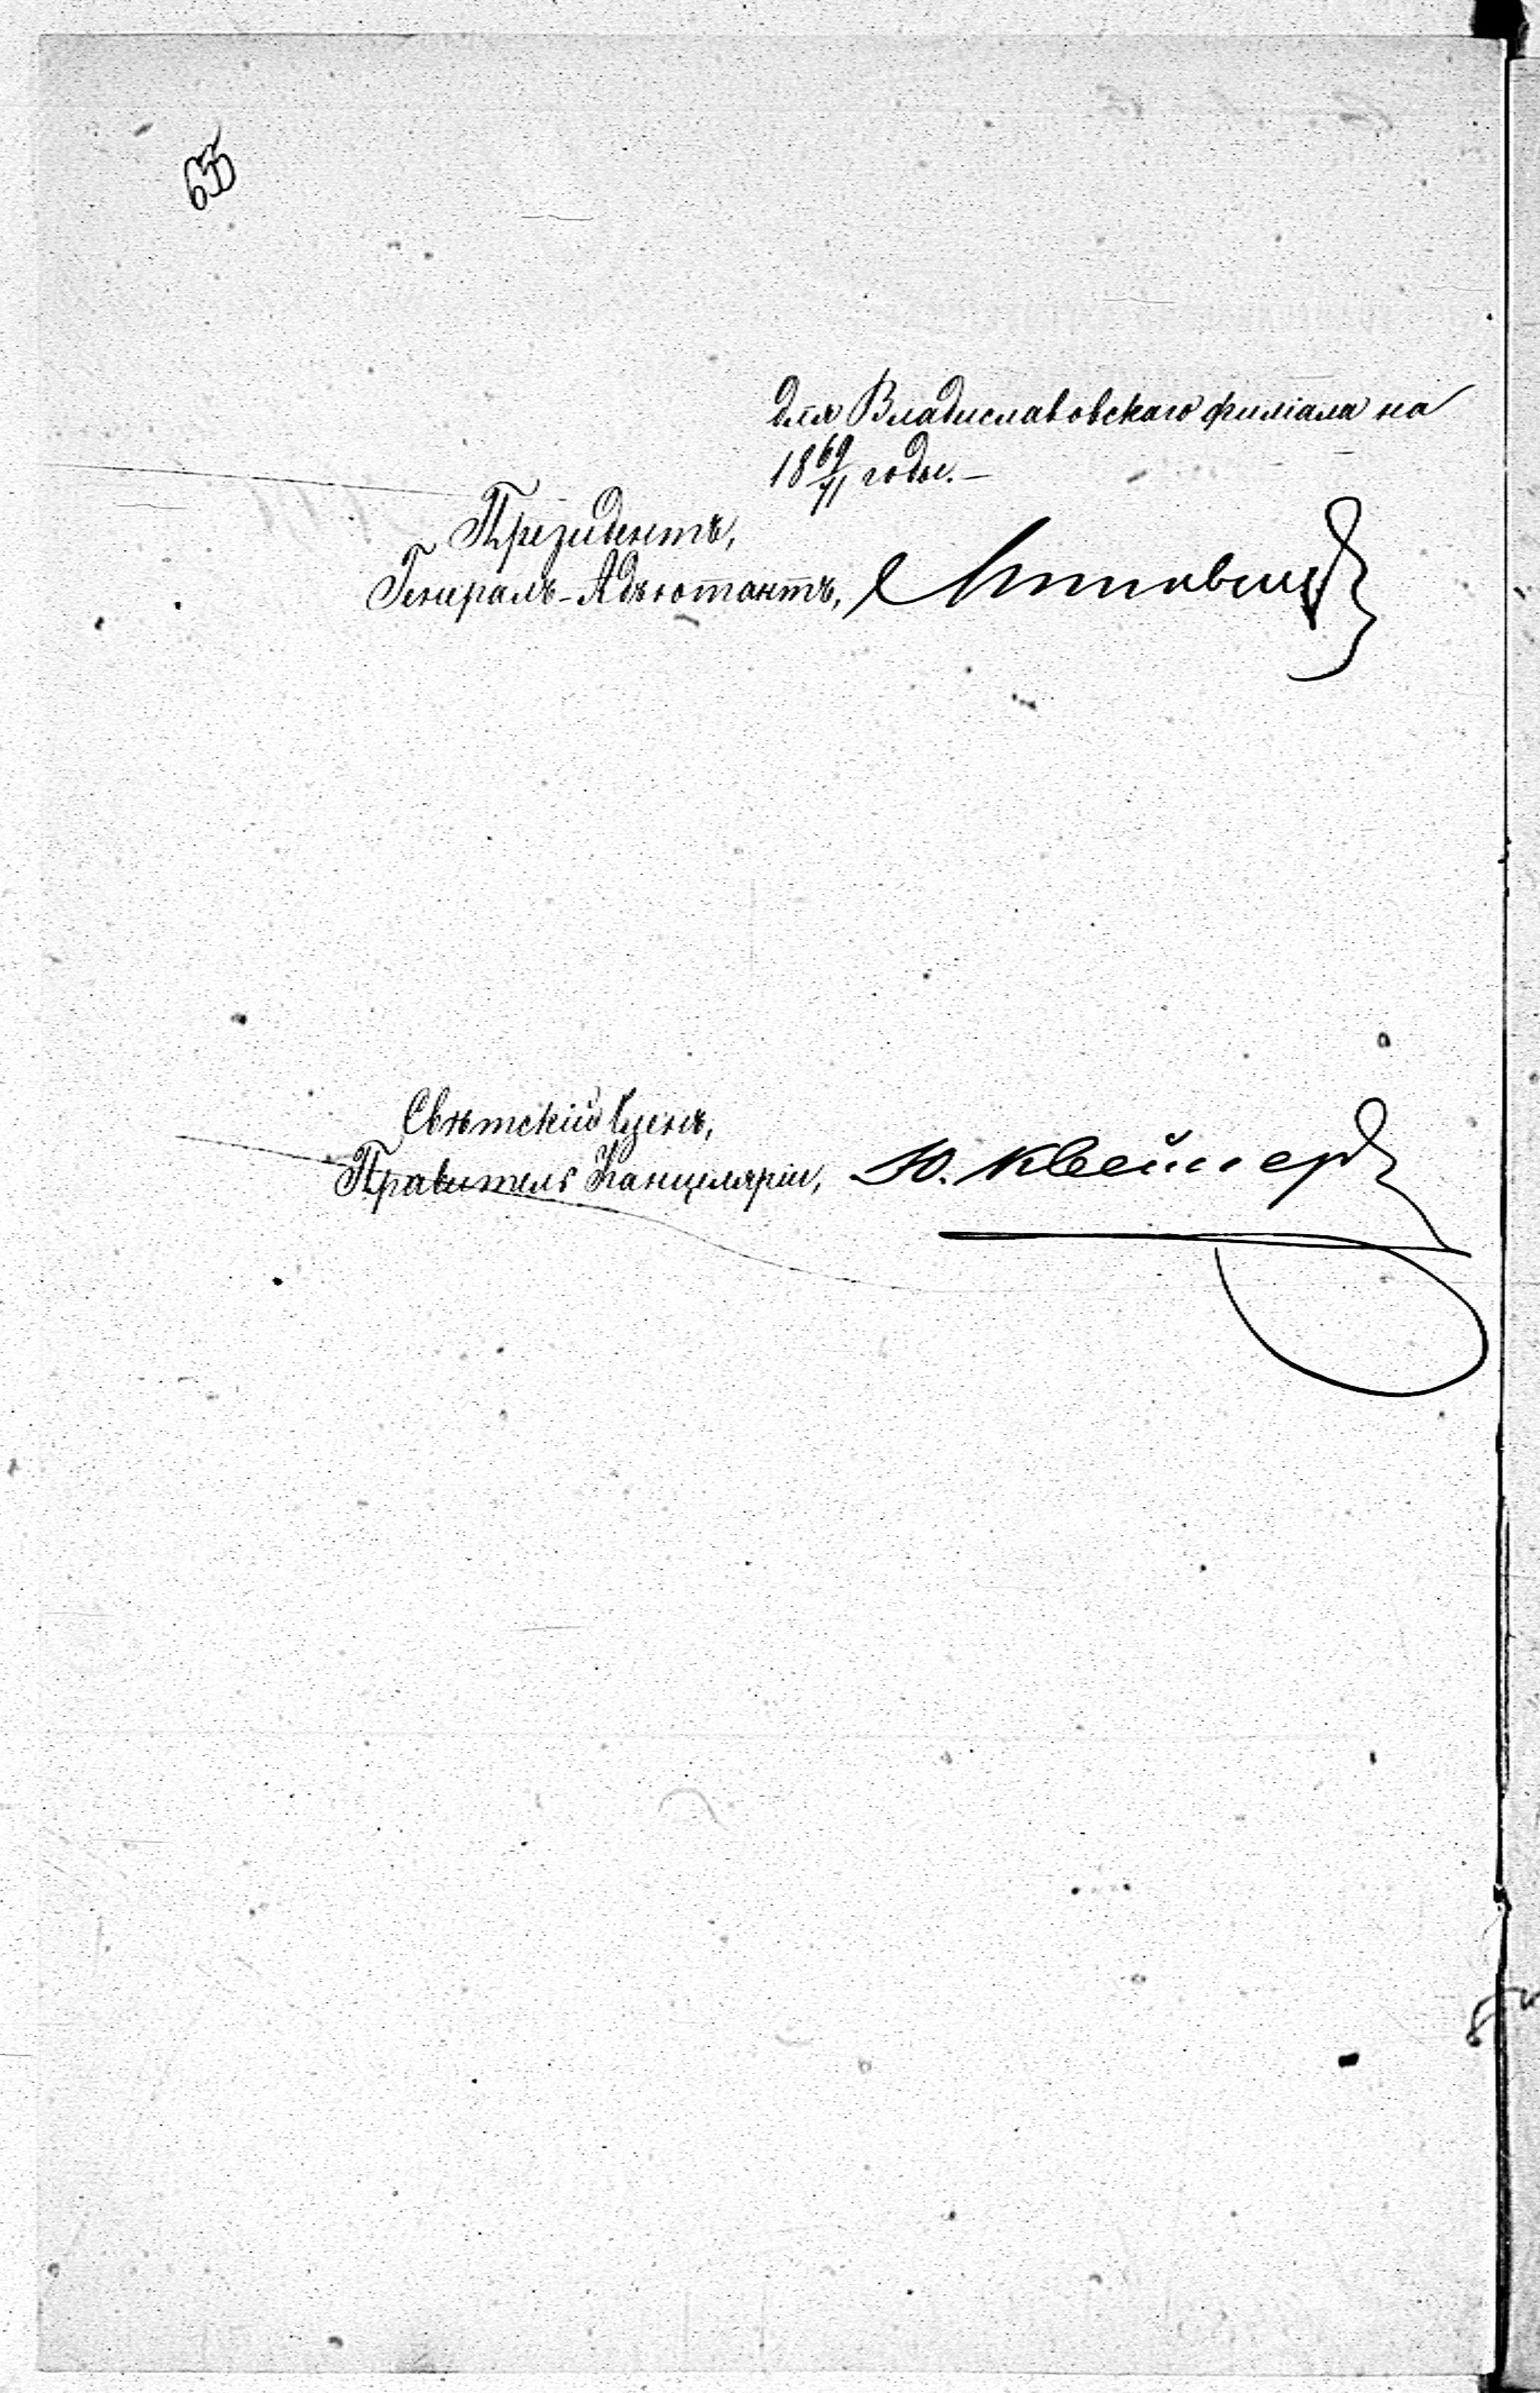 655
для Владиславовскаго филіала на
18 69/71 годы.–
Президентъ,
Генералъ-Адъютантъ,
Свѣтскій Членъ,
Правитель Канцеляріи, Ю.